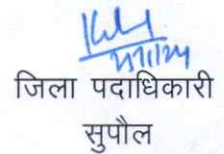 जिला पदाधिकारी
सुपौल